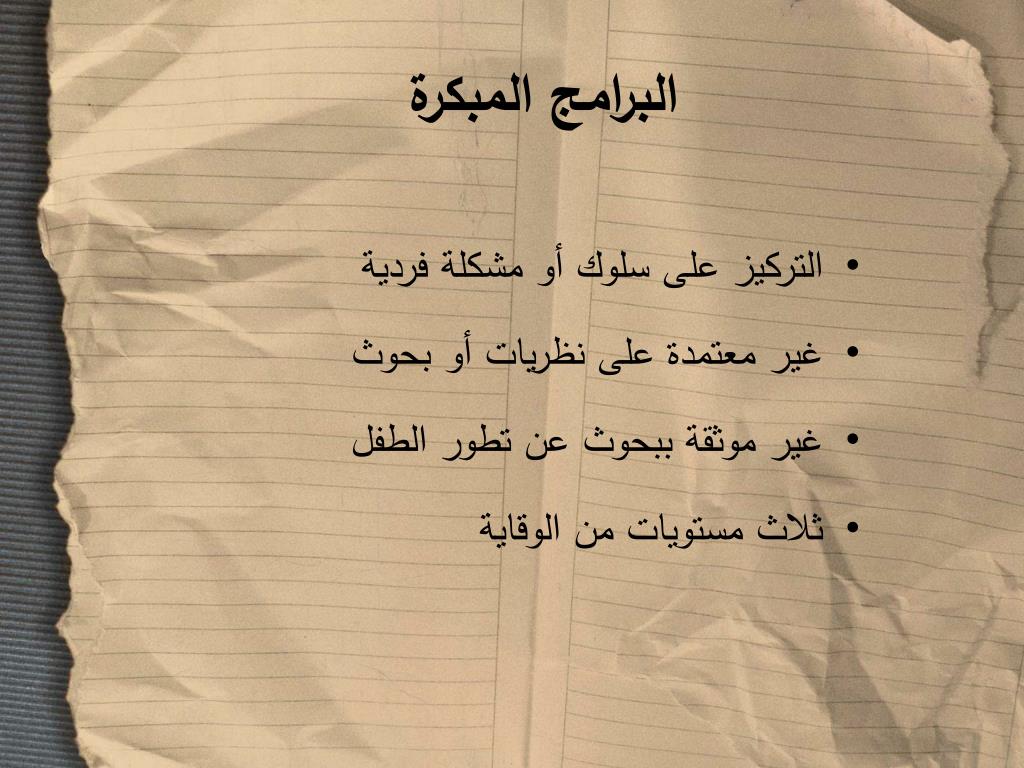 البرامج المبكرة
• التركيز على سلوك أو مشكلة فردية
• غير معتمدة على نظريات أو بحوث
• غير موثقة ببحوث عن تطور الطفل
• ثلاث مستويات من الوقاية